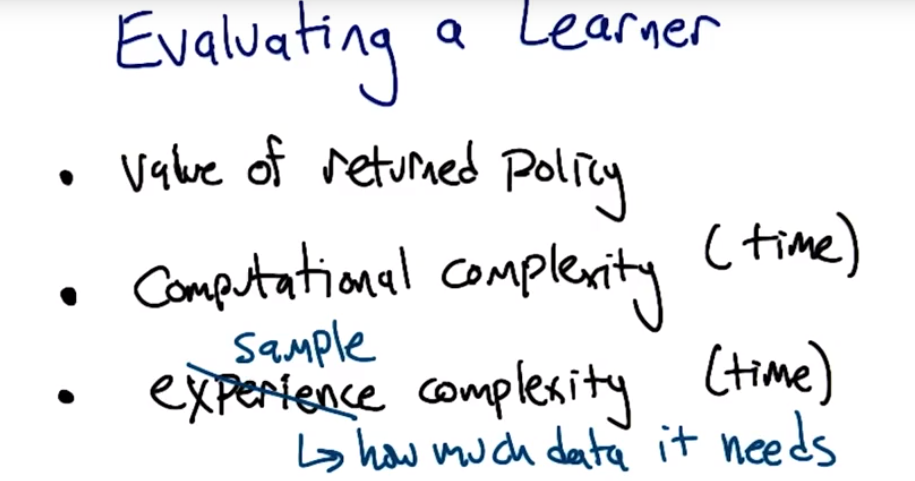 Evaluating a Learner
• Value of returned policy
• Computational complexity (time)
sample
• experience complexity (time)
↳ how much data it needs